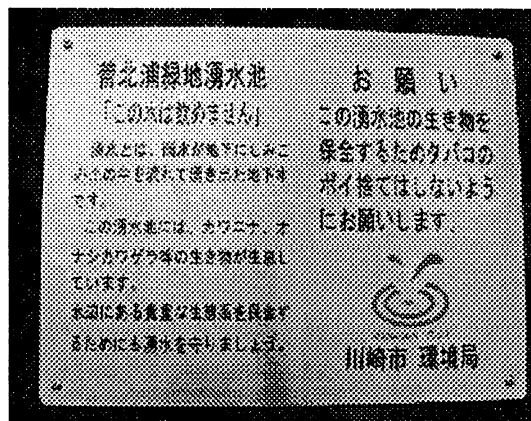 菅北浦緑地湧水池
「この水は飲めません」
湧水とは、雨水が地下にしみこ
み土の中を流れて湧き出た地下水
です。
この湧水池には、カワニナ、オ
ナシカワゲラ等の生き物が生息し
ています。
水辺にある貴重な生態系を保全す
るためにも湧水を守りましょう。
お願い
この湧水池の生き物を
保全するためタバコの
ポイ捨てはしないよう
にお願いします。
川崎市 環境局